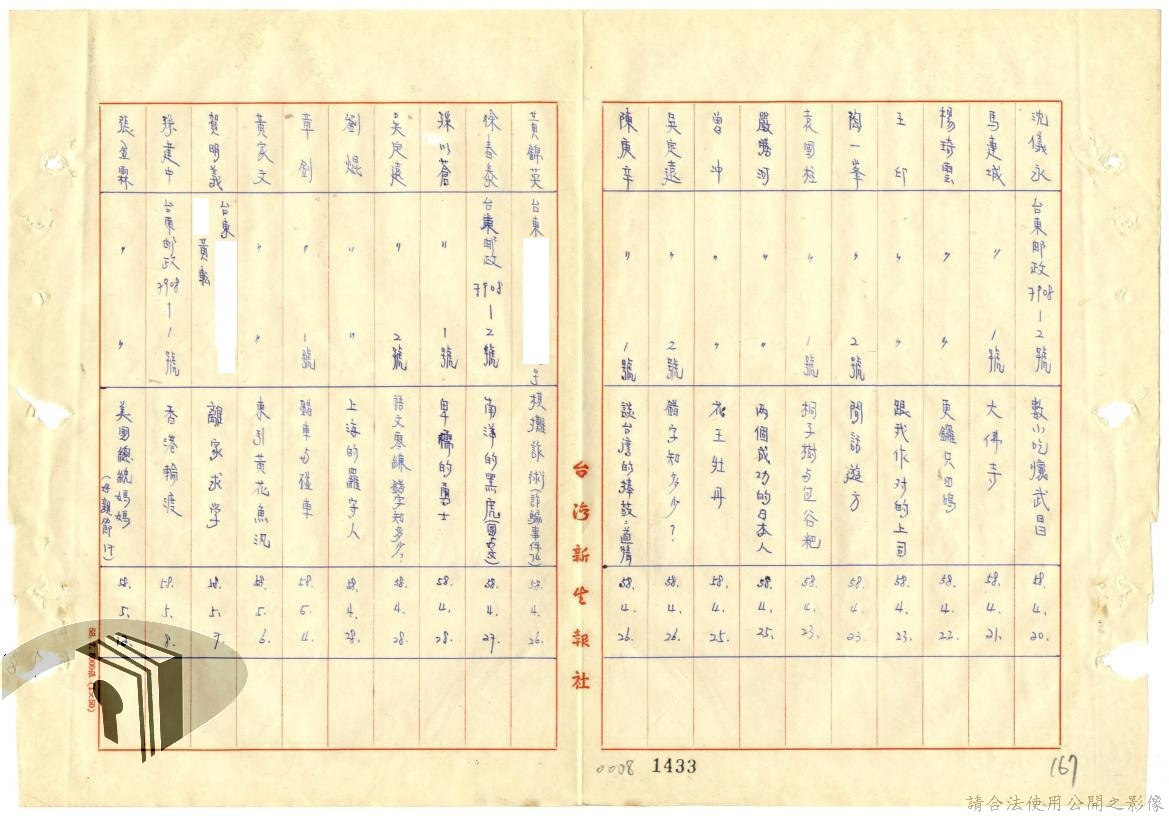 沈儀永 台東郵政7908-2號 數小吃懷武昌 58.4.20.
馬連城 〃 1號 大佛寺 58.4.21.
楊琦雲 〃 〃 更鑼只四鳴 58.4.22.
王邱 〃 〃 跟我作对的上司 58.4.23.
陶一峯 〃 2號 閒話遊方 58.4.23.
袁國柱 〃 1號 桐子樹与包谷粑 58.4.23.
嚴勝河 〃 〃 兩個成功的日本人 58.4.25.
曾冲 〃 〃 花王牡丹 58.4.25.
吳定遠 〃 2號 錯字知多少? 58.4.26.
陳庚辛 〃 1號 談台灣的捧鼓:道情 58.4.26.
台灣新生報社
黃錦英 台東 子 摸攤訴術(詐騙事件 58.4.26.
徐春泰 台東郵政7908-2號 南洋的黑虎 58.4.27.
孫以蒼 〃 1號 卑裔的勇士 58.4.28.
吳定遠 〃 2號 語文零練 錯字知多少? 58.4.28.
劉焜 〃 〃 上海的羅宇人 58.4.28.
章劍 〃 1號 騎車与碰車 58.5.4.
黃家文 〃 〃 東引黃花魚汛 58.5.6.
賀明義 台東 黃 離家求学 58.5.7.
孫建中 台東郵政7908-1號 香港輪渡 58.5.8.
張金霖 〃 〃 美國總統媽媽(母親節 58.5.
0008 1433
167
請合法使用公開之影像